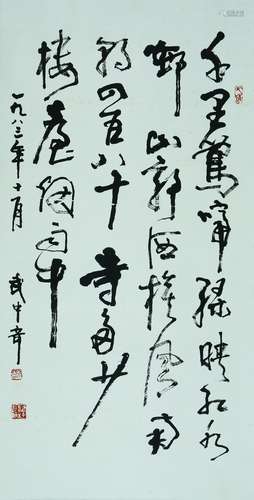 千里鶯啼綠映紅水
邨山郭酒旗風南
朝四百八十寺多少
樓臺烟雨中
一九八三年十月 武中奇